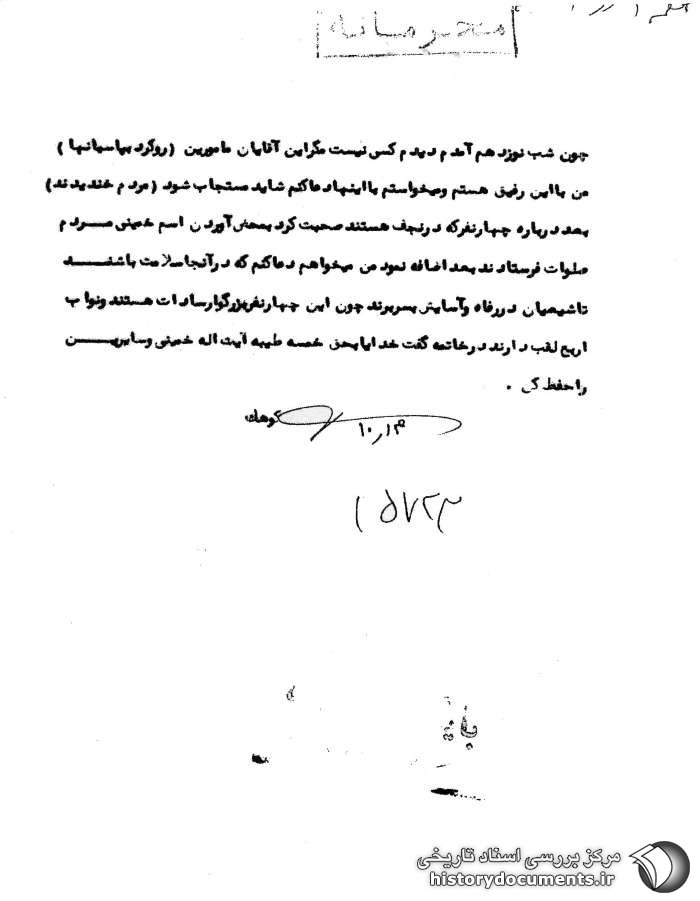 محرمانه
چون شب نوزدهم آمدم دیدم کسی نیست مگر این آقایان مامورین (رو کرد بپاسبانها)
من با این رفیق هستم و میخواستم با اینها دعا کنم شاید مستجاب شود (مردم خندیدند)
بعد درباره چهار نفر که در نجف هستند صحبت کرد بمحض آوردن اسم خمینی مردم
صلوات فرستادند بعد اضافه نمود من میخواهم دعا کنم که در آنجا سلامت باشند
تا شیعیان در رفاه و آسایش بسر برند چون این چهار نفر بزرگوار سادات هستند و نواب
اربع لقب دارند در خاتمه گفت خدایا بحق خمسه طیبه آیت اله خمینی و سایرین
را حفظ کن .
کوهک
۱۰٫۱۴
۱۵۷۲۳
مرکز بررسی اسناد تاریخی
historydocuments.ir